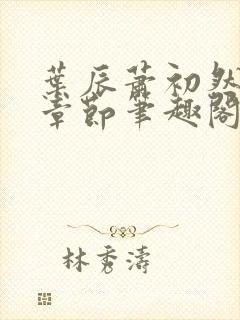 葉辰蕭初然
章節筆趣閣
林秀濤